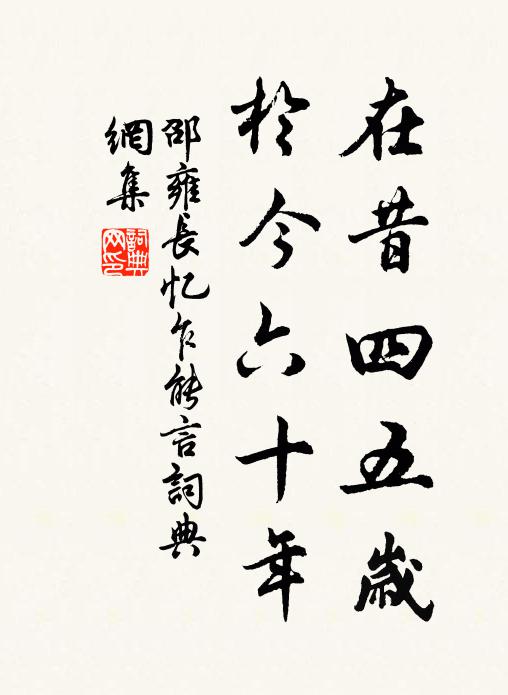 在昔四五歲
於今六十年
邵雍長忆乍能言詞典
網集
詞典
网印